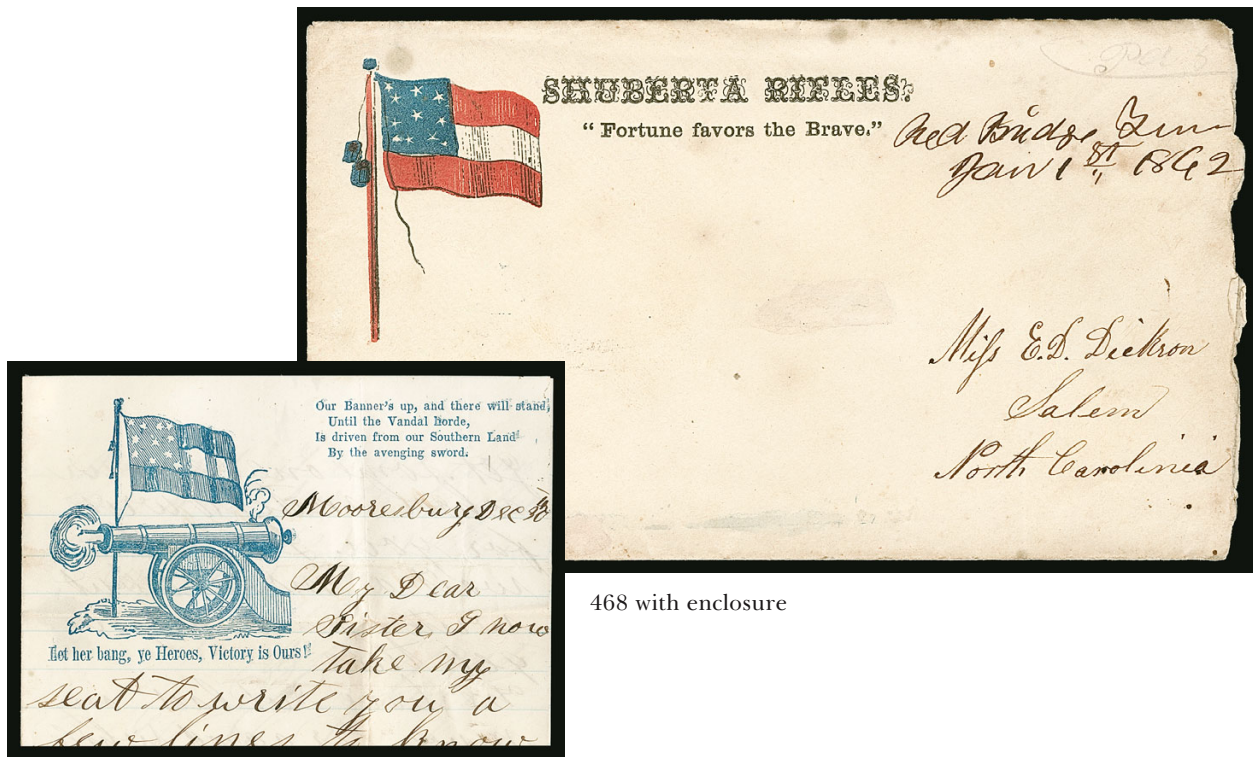 SHUBERTA RIFLES.
“ Fortune favors the Brave.”
Red Bridge Tenn
Jan 1st 1862
Miss E.D. Dickson
Salem
North Carolinia
Our Banner's up, and there will stand,
Until the Vandal horde,
Is driven from our Southern Land
By the avenging sword.
Mooresburg Dec 30
My Dear
Sister, I now
Let her bang, ye Heroes, Victory is Ours!!
take my
seat to write you a
few lines to know
468 with enclosure